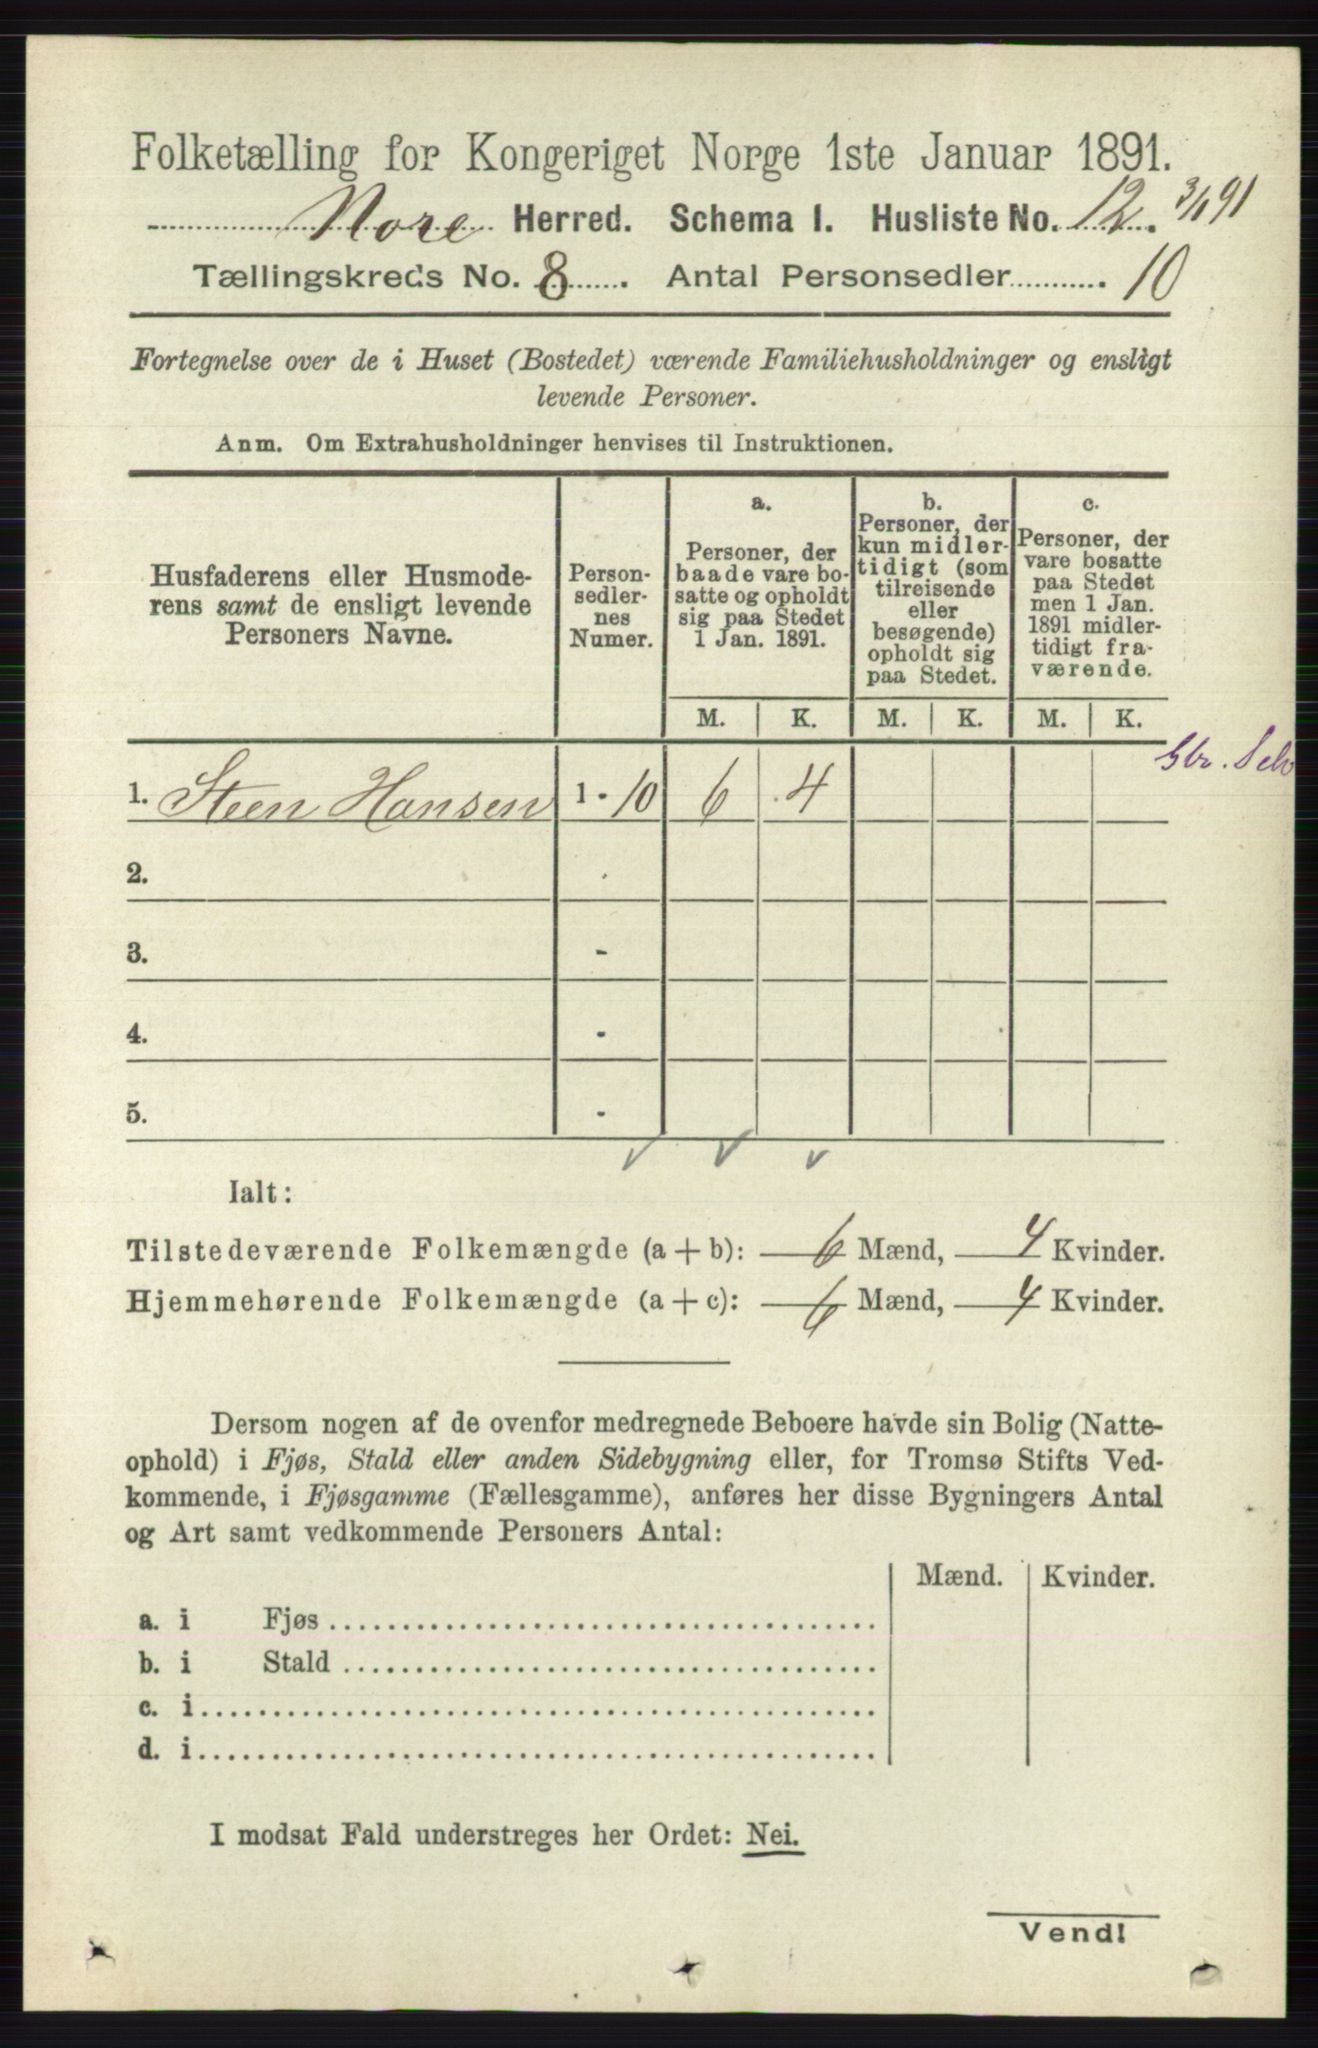 Folketælling for Kongeriget Norge 1ste Januar 1891.
Nore Herred. Schema I. Husliste No. 12. 3/1 91
Tællingskreds No. 8. Antal Personsedler 10
Fortegnelse over de i Huset (Bostedet) værende Familiehusholdninger og ensligt
levende Personer.
Anm. Om Extrahusholdninger henvises til Instruktionen.
Husfaderens eller Husmode-
rens samt de ensligt levende
Personers Navne.
Person-
sedler-
nes
Numer.
a.
Personer, der
baade vare bo-
satte og opholdt
sig paa Stedet
1 Jan. 1891.
b.
Personer, der
kun midler-
tidigt (som
tilreisende
eller
besøgende)
opholdt sig
paa Stedet.
c.
Personer, der
vare bosatte
paa Stedet
men 1 Jan.
1891 midler-
tidigt fra-
værende.
M. K. M. K. M. K.
1. Steen Hansen 1 - 10 6 4
Gbr. Selv
2.
3. -
4. -
5. -
Ialt:
Tilstedeværende Folkemængde (a + b): 6 Mænd, 4 Kvinder.
Hjemmehørende Folkemængde (a + c): 6 Mænd, 4 Kvinder.
Dersom nogen af de ovenfor medregnede Beboere havde sin Bolig (Natte-
ophold) i Fjøs, Stald eller anden Sidebygning eller, for Tromsø Stifts Ved-
kommende, i Fjøsgamme (Fællesgamme), anføres her disse Bygningers Antal
og Art samt vedkommende Personers Antal:
Mænd. Kvinder.
a. i Fjøs
b. i Stald
c. i
d. i
I modsat Fald understreges her Ordet: Nei.
Vend!